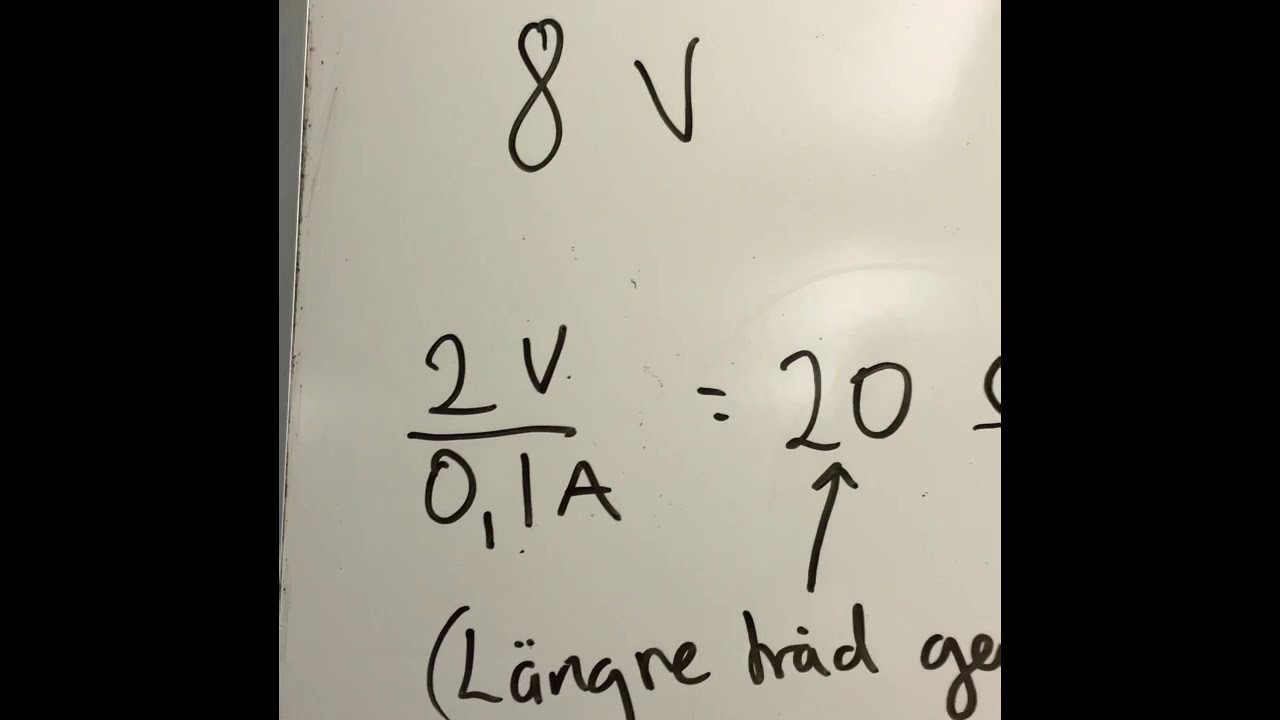 8 V
2 V
= 20
0,1A
(Längre tråd ge